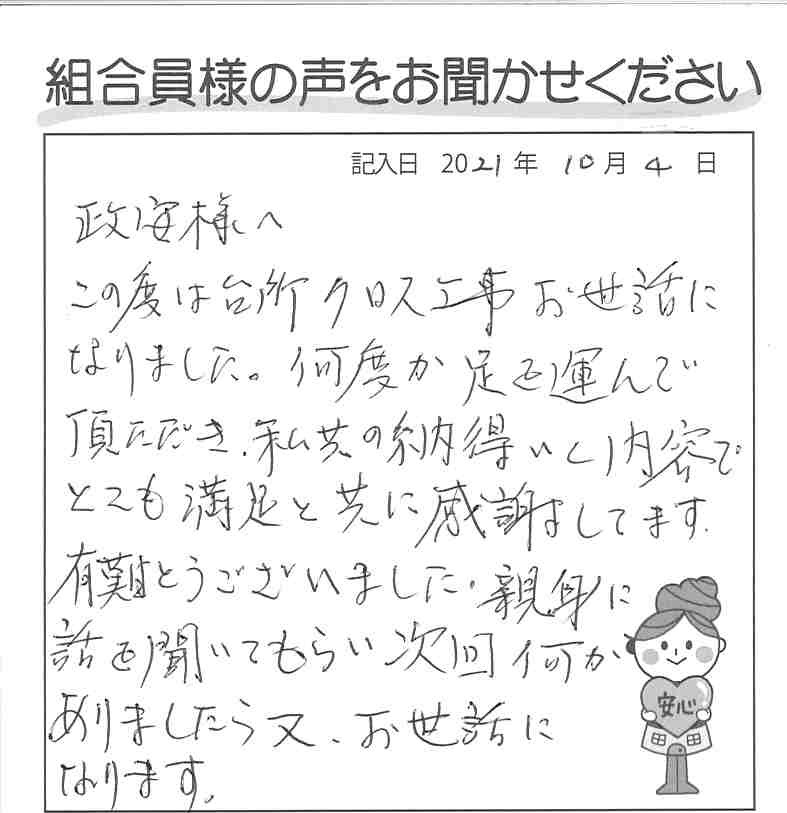 組合員様の声をお聞かせください
記入日 2021年 10月 4日
政安様へ
この度は台所クロス工事お世話に
なりました。何度か足を運んで
頂ただき、私共の納得いく内容で
とても満足と共に感謝してます。
有難とうございました。親身に
話を聞いてもらい次回何か
ありましたら又、お世話に
なります。
安心